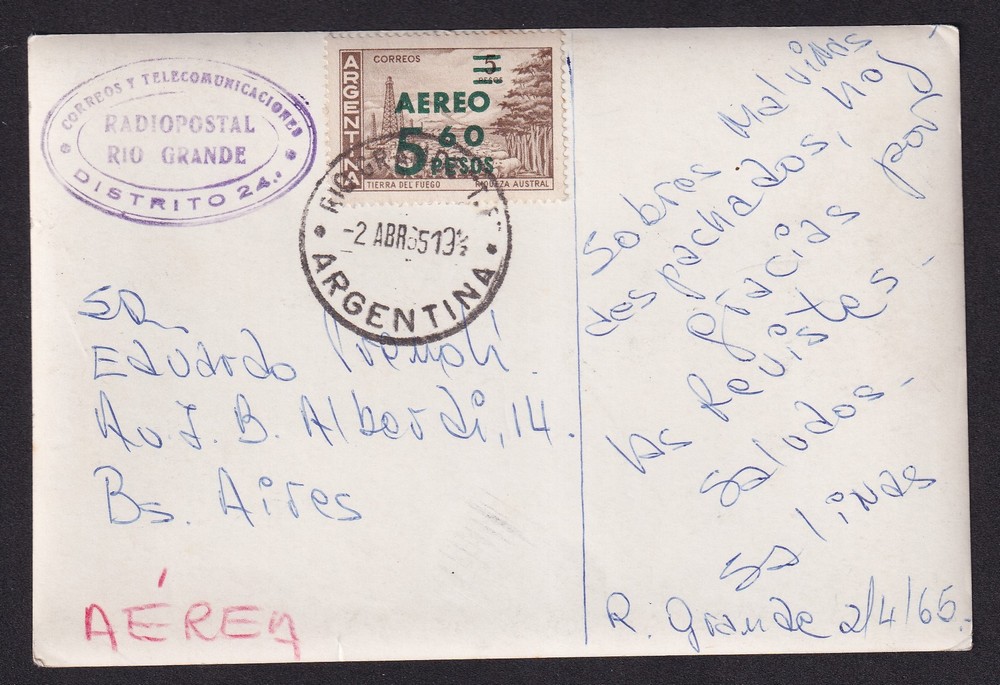 CORREOS Y TELECOMUNICACIONES
RADIOPOSTAL
RIO GRANDE
DISTRITO 24.
ARGENTINA
CORREOS
5
PESOS
AEREO
5 60
PESOS
TIERRA DEL FUEGO
RIQUEZA AUSTRAL
RIO GRANDE
-2 ABR 65 19½
ARGENTINA
Sr.
Eduardo
Av. J. B. Alberdi, 14.
Bs. Aires
AÉREA
Sobres Malvinas
despachados, hoy
gracias por
las Revistas.
Saludos.
Salinas
R. Grande 2/4/65.